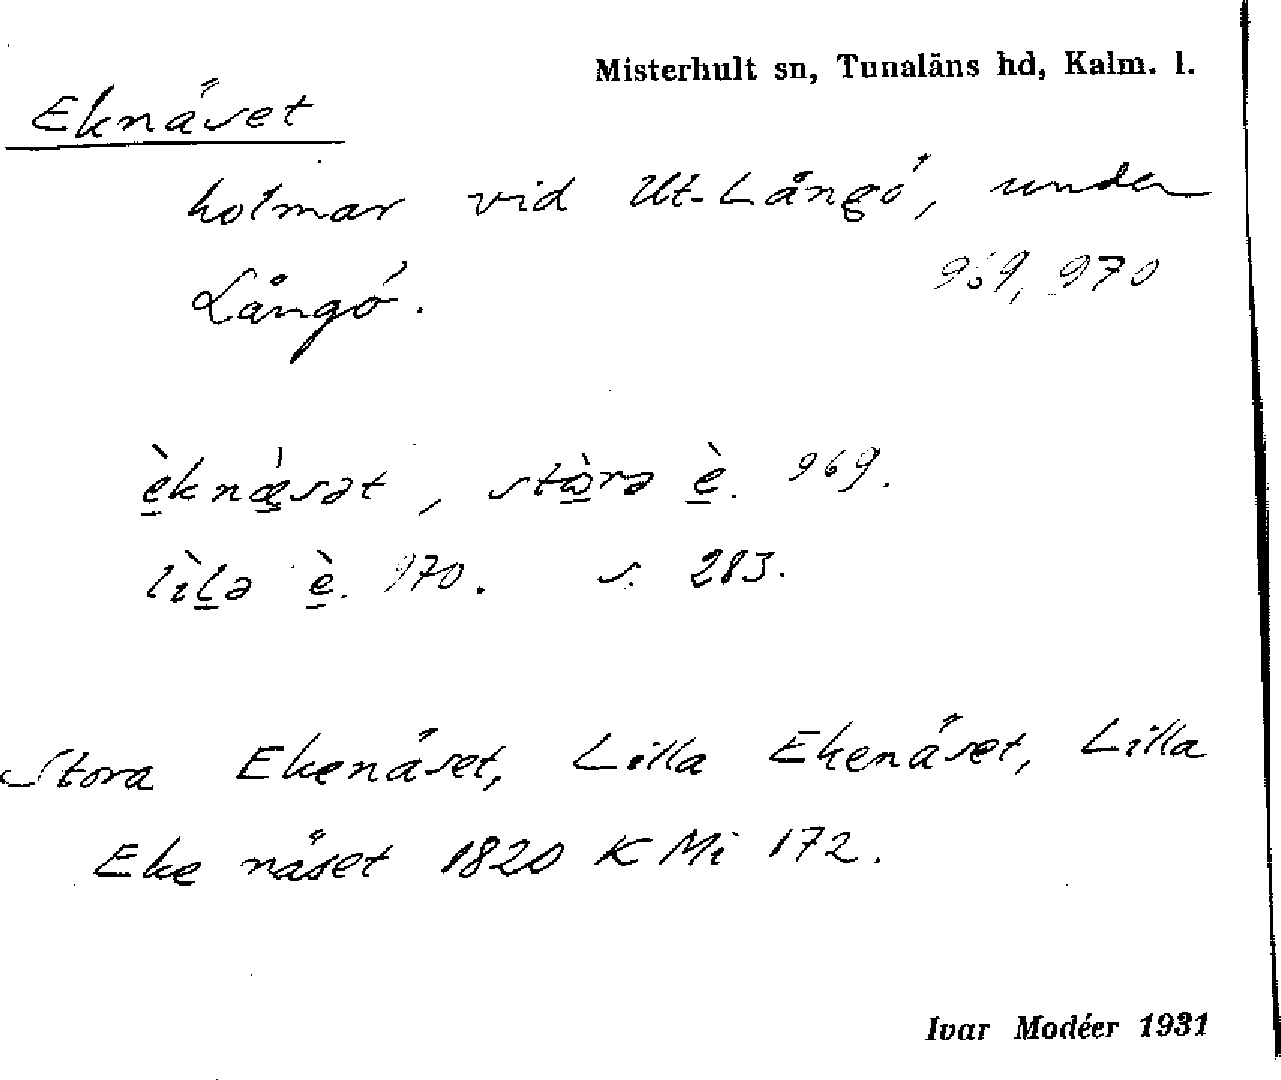 Misterhult sn, Tunaläns hd, Kalm. l.
Eknäset
holmar vid Ut-Långö, under
Långö. 969, 970
è̠knǽ̠sət, stò̠rə è̠. 969.
lìl̠ə è̠. 970. s. 283.
Stora Ekenäset, Lilla Ekenäset, Lilla
Eke näset 1820 K Mi 172.
Ivar Modéer 1931